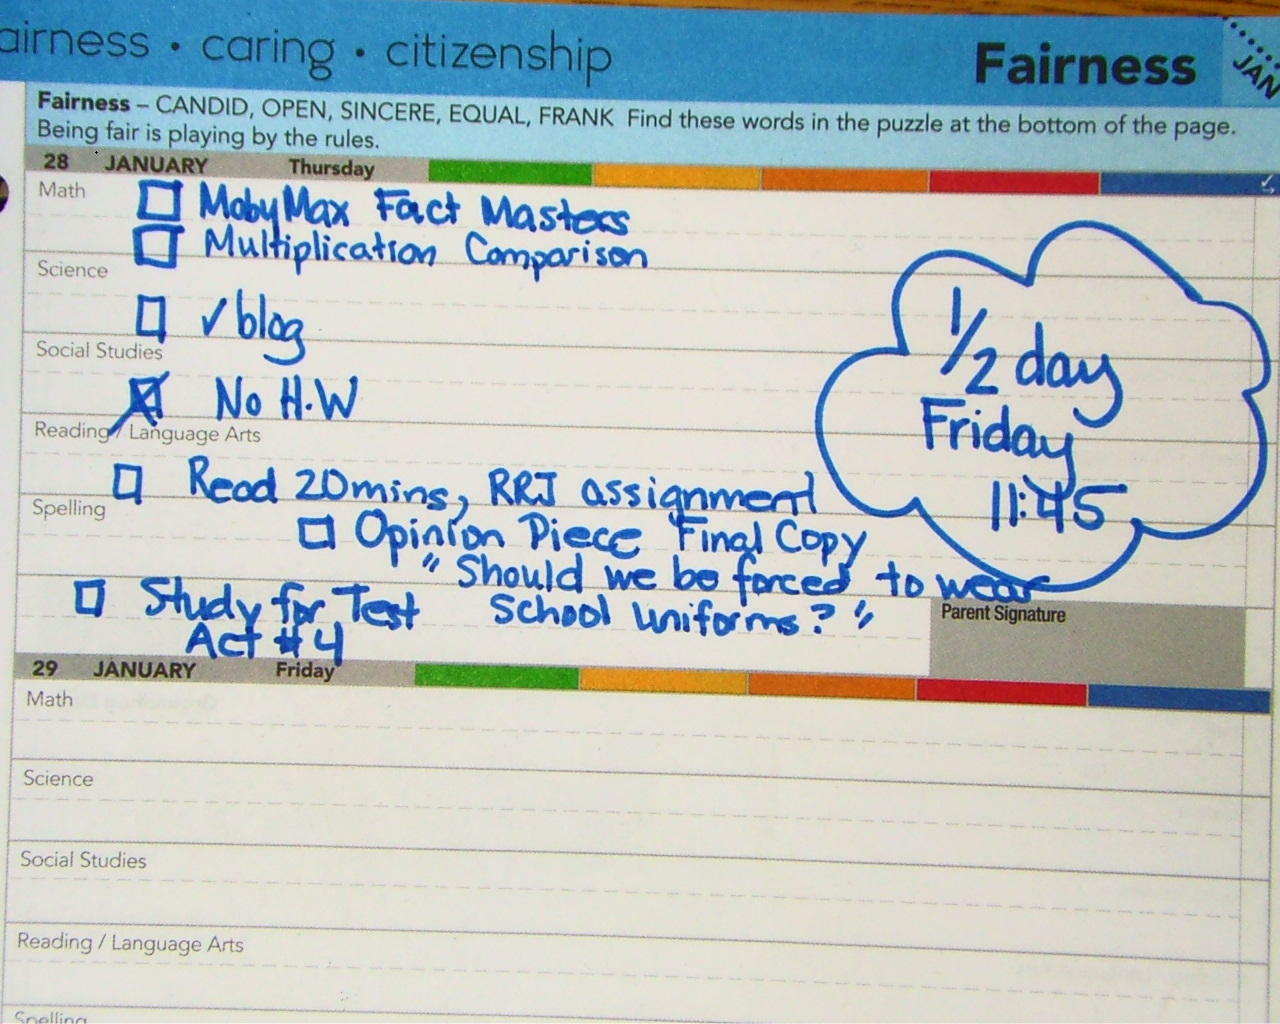 airness • caring • citizenship
Fairness
JAN
Fairness – CANDID, OPEN, SINCERE, EQUAL, FRANK Find these words in the puzzle at the bottom of the page.
Being fair is playing by the rules.
28 JANUARY Thursday
Math
MobyMax Fact Masters
Multiplication Comparison
Science
✓ blog
Social Studies
No H.W
Reading / Language Arts
Read 20mins, RRJ assignment
Spelling
Opinion Piece Final Copy
"Should we be forced to wear
School Uniforms?"
Study for Test
Act #4
1/2 day
Friday
11:45
Parent Signature
29 JANUARY Friday
Math
Science
Social Studies
Reading / Language Arts
Spelling